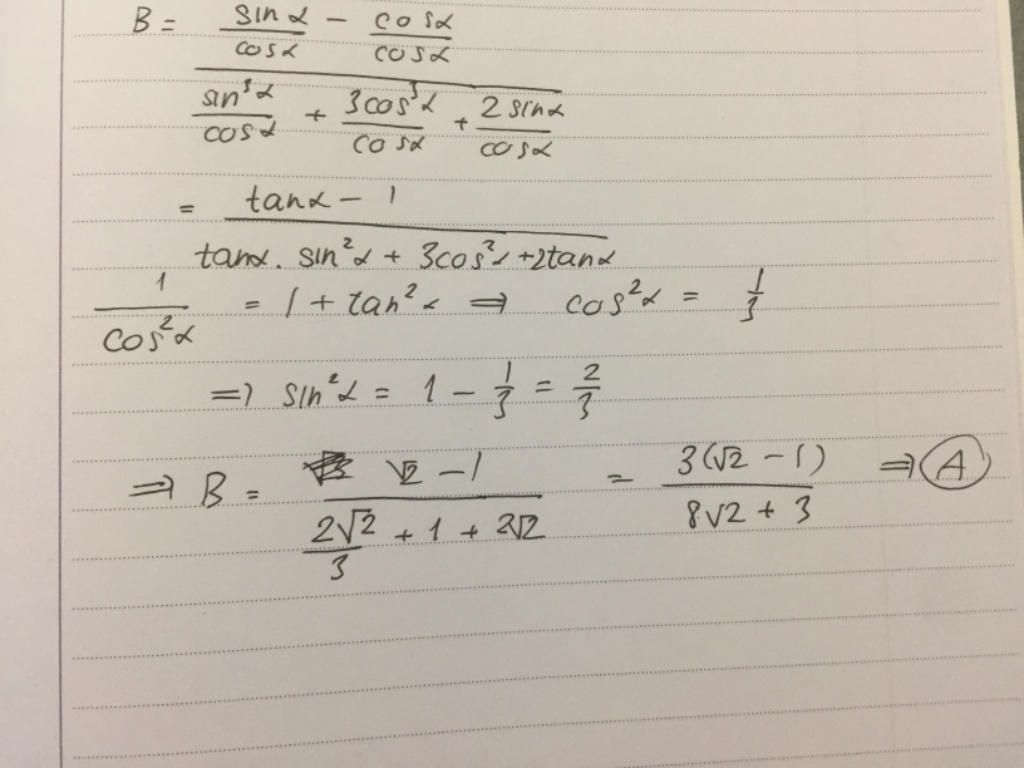 B = (sinα/cosα − cosα/cosα) / (sin³α/cosα + 3cos³α/cosα + 2sinα/cosα)
= (tanα − 1) / (tanα. sin²α + 3cos²α + 2tanα)
1/cos²α = 1 + tan²α ⇒ cos²α = 1/3
⇒ sin²α = 1 − 1/3 = 2/3
⇒ B = (√2 − 1) / (2√2/3 + 1 + 2√2) = 3(√2 − 1) / (8√2 + 3) ⇒ A